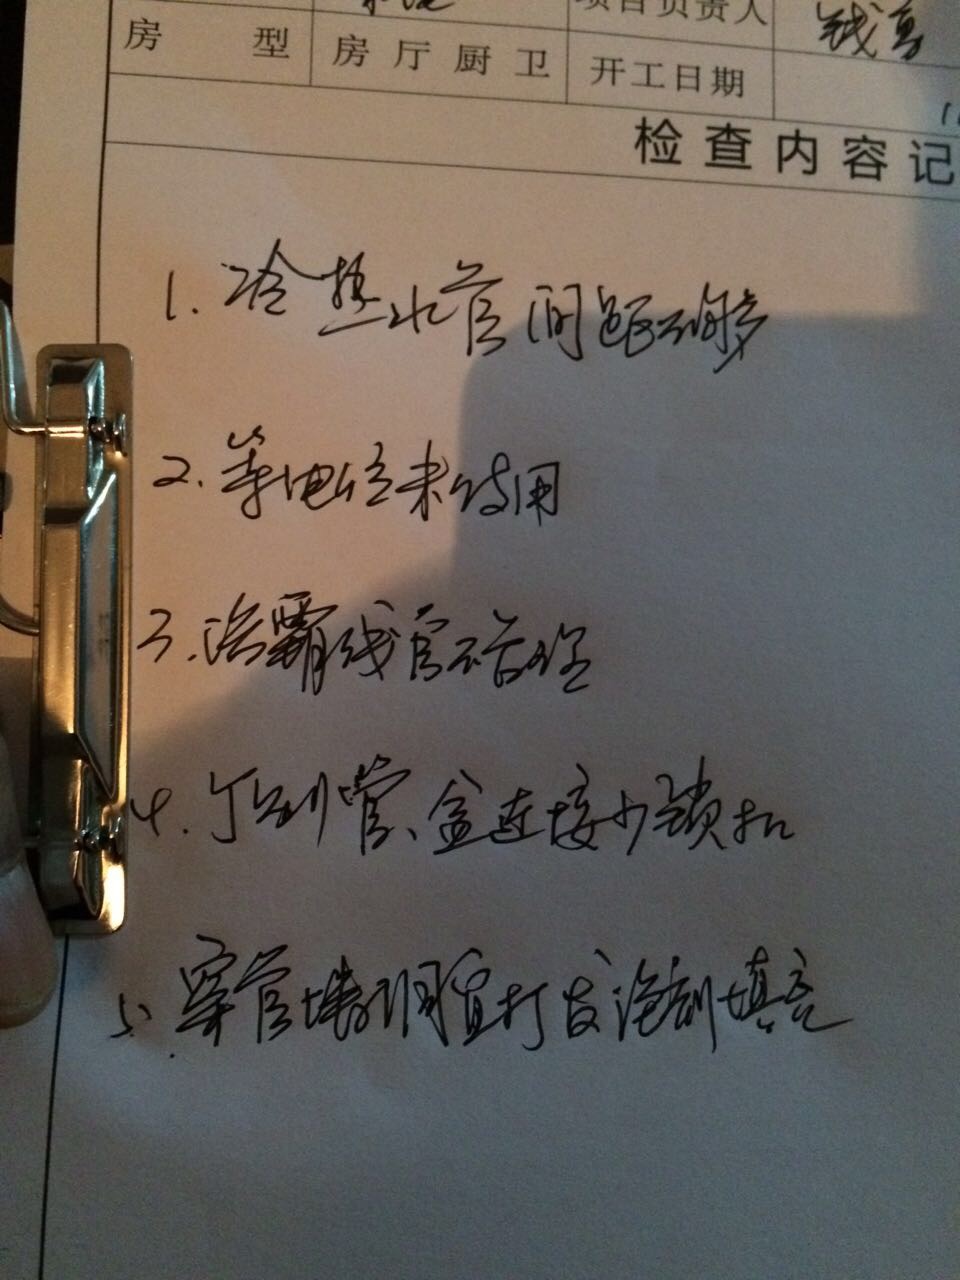 项目负责人 钱
房 型 房 厅 厨 卫 开工日期
检查内容记
1. 冷热水管间距不够
2. 等电位未使用
3. 浴霸线管不合理
4. 丁型管、盒连接少锁扣
5. 穿管墙洞宜打发泡剂填充